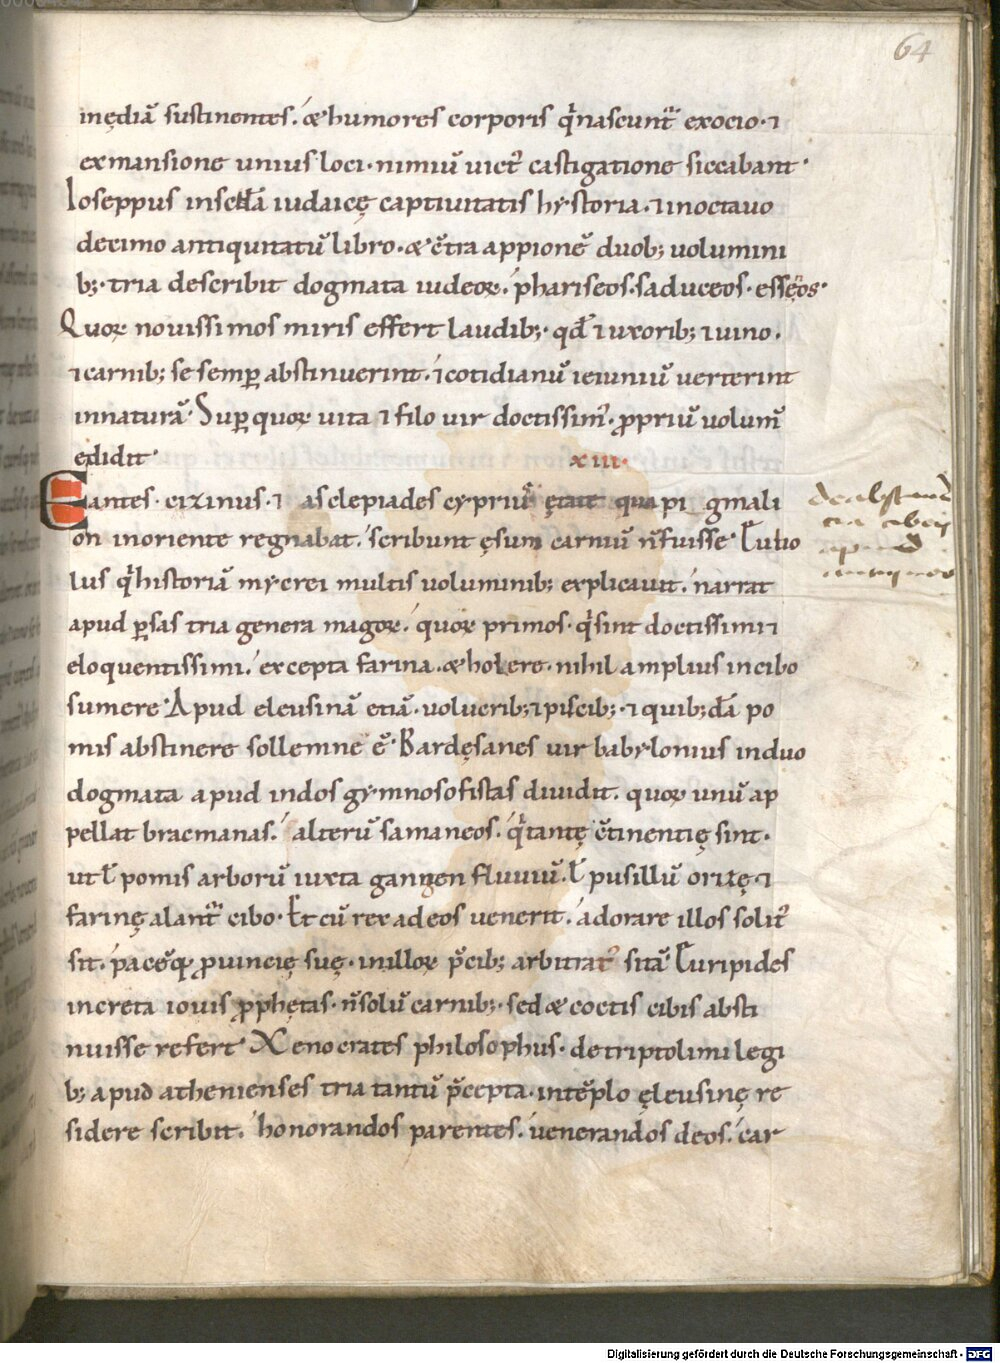 64
inędiā sustinentes. & humores corporis q̄ nascunt᷑ exocio · ⁊
exmansione unius loci · nimiū uict᷑ castigatione siccabant ·
Ioseppus inscďa iudaicę captiuitatis hystoria · ⁊ inoctauo
decimo antiquitatū libro · & c̄tra appionē duob; uolumini
b; · tria describit dogmata iudeoꝝ · phariseos · saduceos · essęos ·
Quoꝝ nouissimos miris effert laudib; · qđ ⁊ uxorib; ⁊ uino ·
⁊ carnib; se semꝑ abstinuerint · ⁊ cotidianū ieiuniū uerterint
innaturā · Suꝑ quoꝝ uita ⁊ filo uir doctissim᷑ · ꝓpriū uolum̄
edidit ·
xiii ·
Eantes · cizinus · ⁊ asclepiades cyprius ętate qua pi gmali
on inoriente regnabat · scribunt ęsum carniū n̄ fuisse · Eubo
lus q̄ historiā mycrei multis uoluminib; explicauit · narrat
apud ꝑsas tria genera magoꝝ · quoꝝ primos · q̄ sint doctissimi ⁊
eloquentissimi · excepta farina · & holere · nihil amplius incibo
sumere · Apud eleusinā etiā · uolucrib; ⁊ piscib; · ⁊ quib; dā po
mis abstinere sollemne ē · Bardęsanes uir babylonius induo
dogmata apud indos gymnosofistas diuidit · quoꝝ unū ap
pellat bracmanas · alterū samaneos · q̄ tantę c̄tinentię sint ·
ut ł pomis arborū iuxta gangen fluuiū · ł pusillū orizę ⁊
farinę alant᷑ cibo · Et cū rex adeos uenerit · adorare illos solit᷑
sit · paceq̄ ꝓuincię suę · inilloꝝ p̄cib; arbitrat᷑ sitā · Euripides
increta iouis ꝓphętas · n̄ solū carnib; · sed & coctis cibis absti
nuisse refert · Xenocrates philosophus · de triptolimi legi
b; apud athenienses tria tantū p̄cepta · intēplo ęleusinę re
sidere scribit · honorandos parentes · uenerandos deos · car
apud
Digitalisierung gefördert durch die Deutsche Forschungsgemeinschaft - DFG